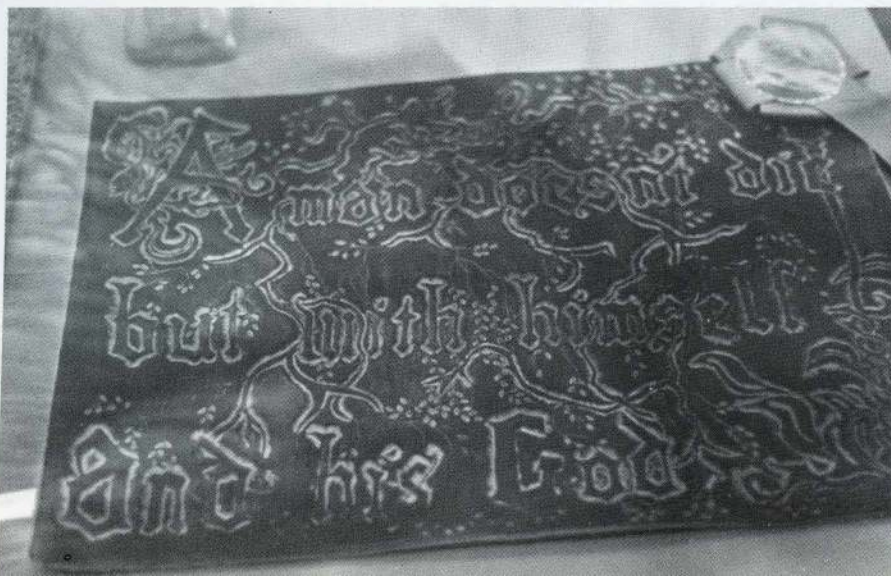 A man doesnt die
but with himself
And his God